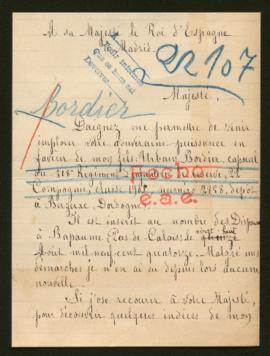 A sa Majesté le Roi d'Espagne
Madrid.
22107
Bordier
Majesté,
Daignez me permettre de venir
implorer votre souveraine puissance en
faveur de mon fils: Urbain Bordier, caporal
au Régiment d'Infanterie,
Compagnie, classe numéro 2858, dépôt
à Bergerac, Dordogne.
hecho
e.a.e.
Il est inscrit au nombre des Disparus
à Bapaume, Pas de Calais, le vingt huit
Août mil neuf cent quatorze. Malgré mes
démarches je n'en ai eu depuis lors aucune
nouvelle.
Si j'ose recourir à votre Majesté,
pour découvrir quelques indices de mon